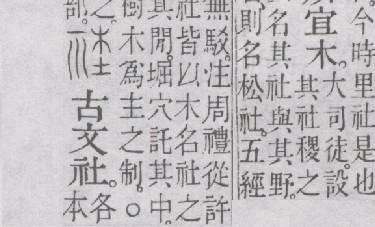 今時里社是也
宜木。
大司徒。設
其社稷之
名其社與其野。
則名松社。五經
無駁。注周禮從許
社皆以木名社之
其閒。掘穴託其中。
樹木爲主之制。○
之。
部。
古文社。
各
本